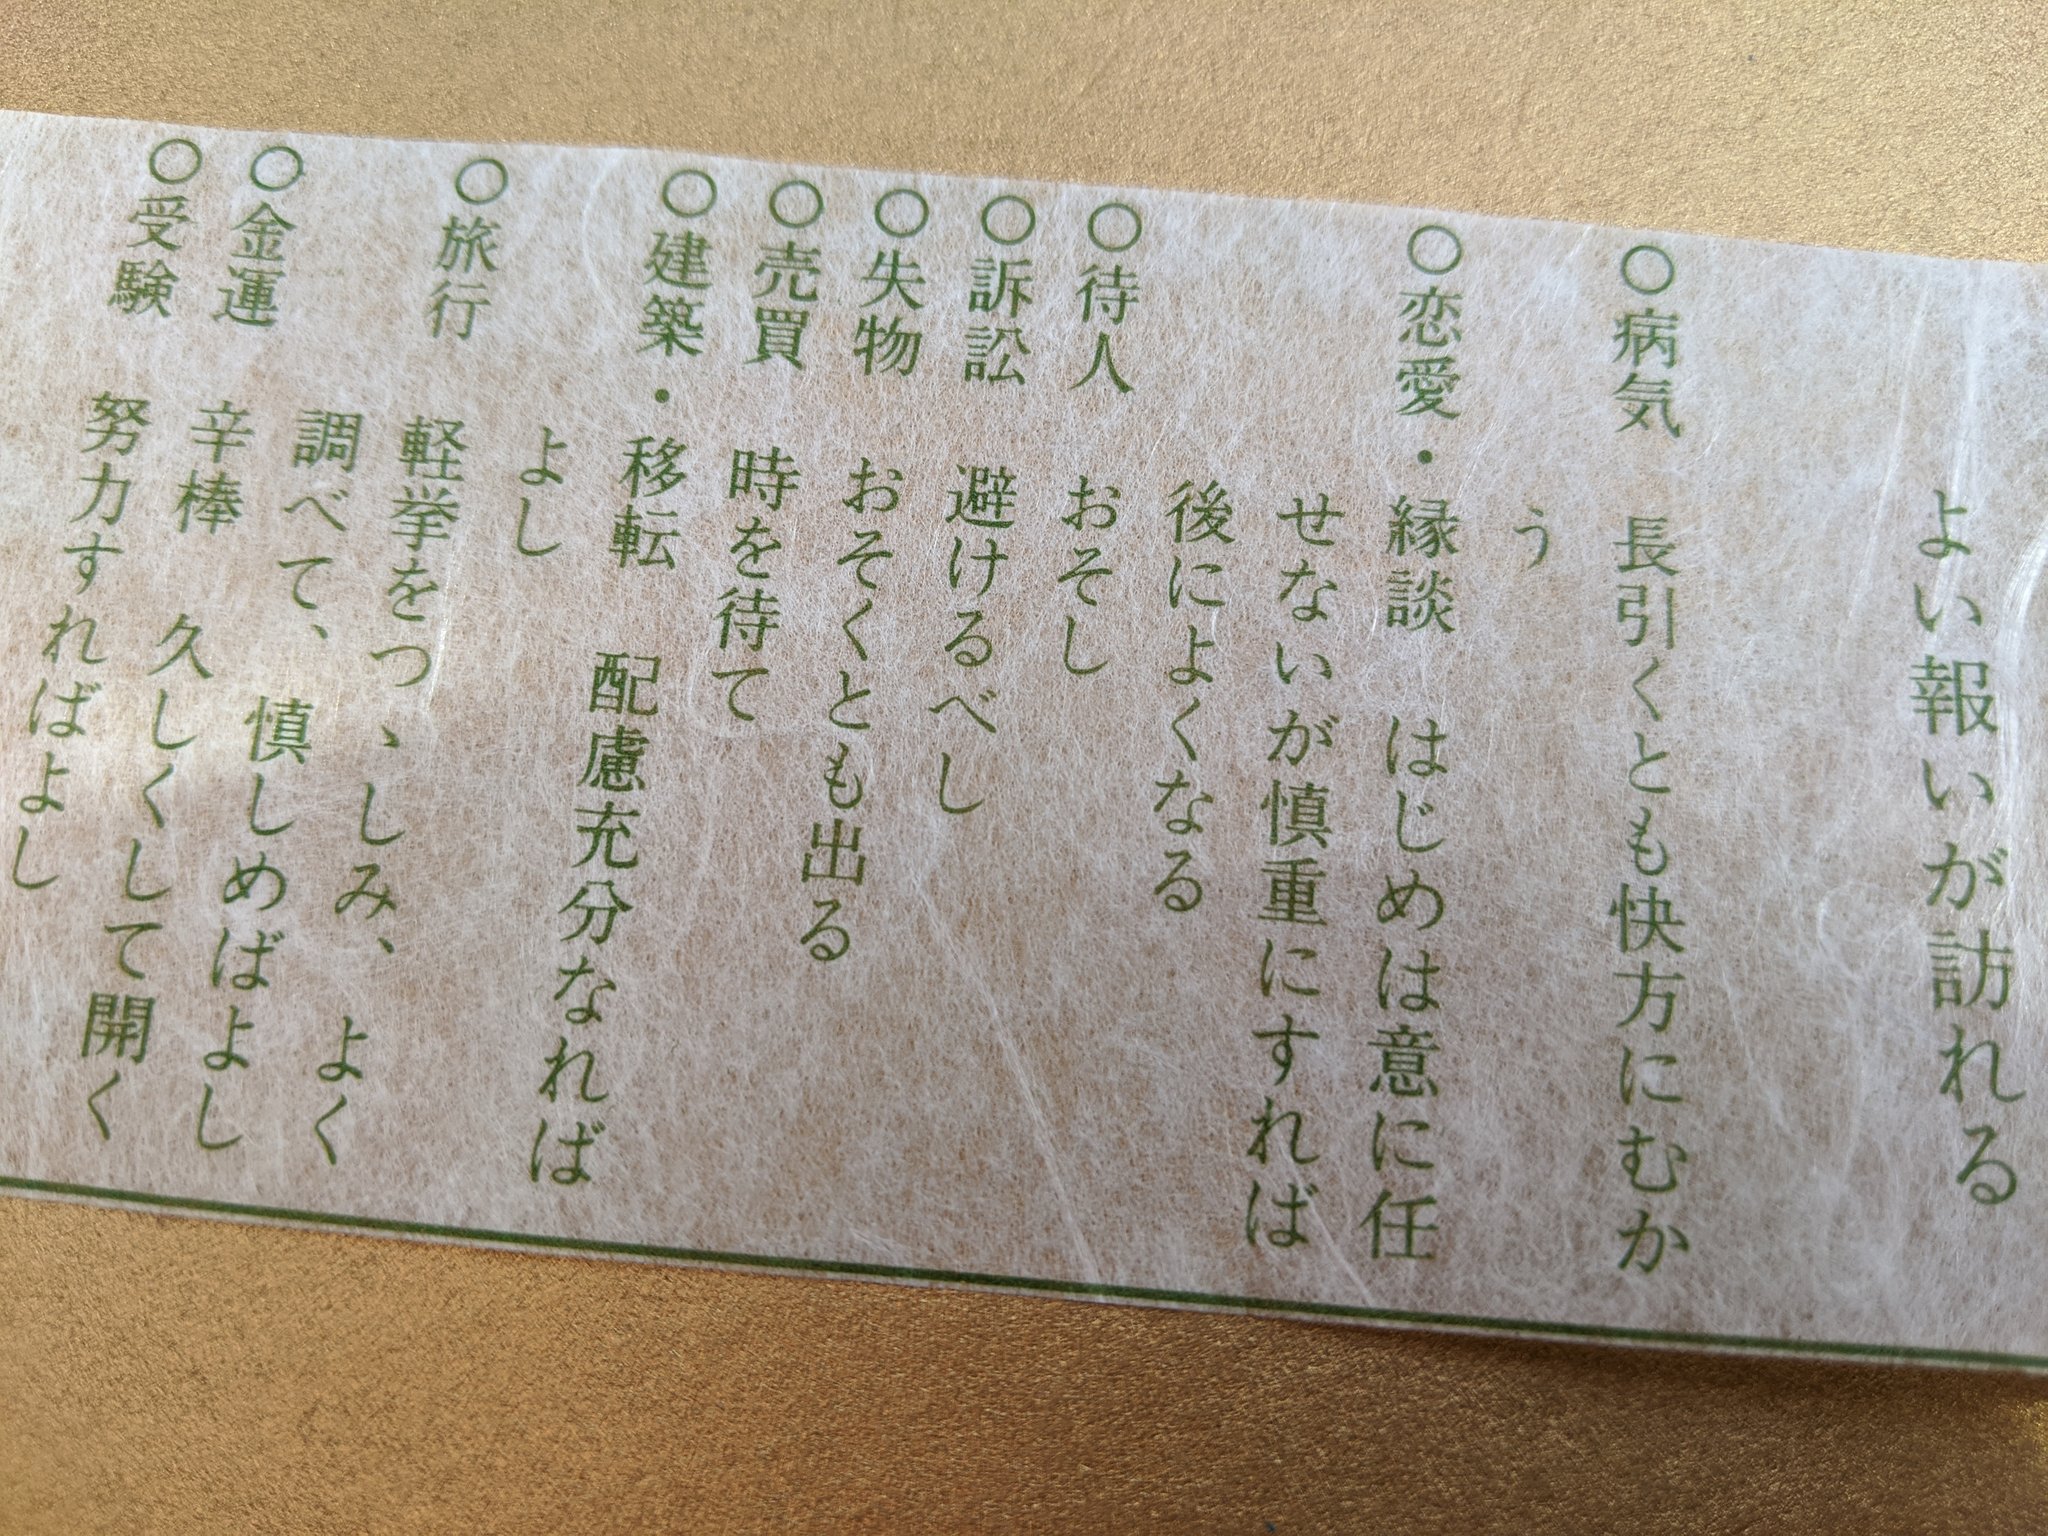 よい報いが訪れる
○病気 長引くとも快方にむか
う
○恋愛・縁談 はじめは意に任
せないが慎重にすれば
後によくなる
○待人 おそし
○訴訟 避けるべし
○失物 おそくとも出る
○売買 時を待て
○建築・移転 配慮充分なれば
よし
○旅行 軽挙をつゝしみ、よく
調べて、慎しめばよし
○金運 辛棒 久しくして開く
○受験 努力すればよし